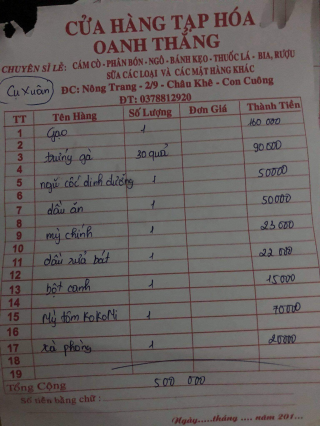 CỬA HÀNG TẠP HÓA
OANH THẮNG
CHUYÊN SỈ LẺ: CÁM CÒ - PHÂN BÓN - NGÔ - BÁNH KẸO - THUỐC LÁ - BIA, RƯỢU
SỮA CÁC LOẠI VÀ CÁC MẶT HÀNG KHÁC
Cụ Xuân
ĐC: Nông Trang - 2/9 - Châu Khê - Con Cuông
ĐT: 0378812920
TT Tên Hàng Số Lượng Đơn Giá Thành Tiền
1 Gạo 1 160 000
2
3 trứng gà 30 quả 90000
4
5 ngũ cốc dinh dưỡng 1 50000
6
7 dầu ăn 1 50000
8
9 mỳ chính 1 23 000
10
11 dầu rửa bát 1 22 000
12
13 bột canh 1 15000
14
15 Mỳ tôm KoKoMi 1 70000
16
17 xà phòng 1 20000
18
19
Tổng Cộng 500 000
Số tiền bằng chữ:
Ngày.....tháng .... năm 201...